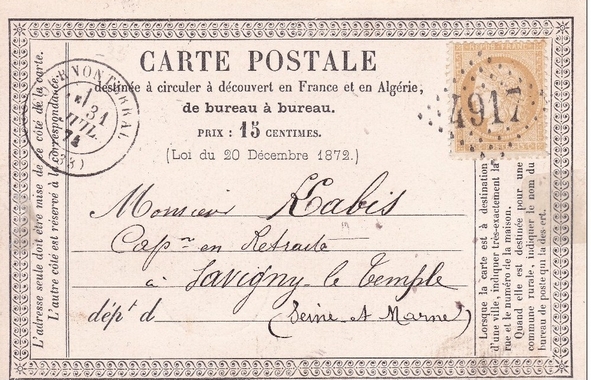 CARTE POSTALE
destinée à circuler à découvert en France et en Algérie,
de bureau à bureau.
PRIX : 15 CENTIMES.
(Loi du 20 Décembre 1872.)
Monsieur Rabis
Cap.ne en Retraite
à Savigny-le-Temple
dép.t d (Seine et Marne)
L'adresse seule doit être mise de ce côté de la carte.
L'autre côté est réservé à la correspondance.
Lorsque la carte est à destination
d'une ville, indiquer très-exactement la
rue et le numéro de la maison.
Quand elle est destinée pour une
commune rurale, indiquer le nom du
bureau de poste qui la dessert.
4917
31
JUIL.
74
(33)